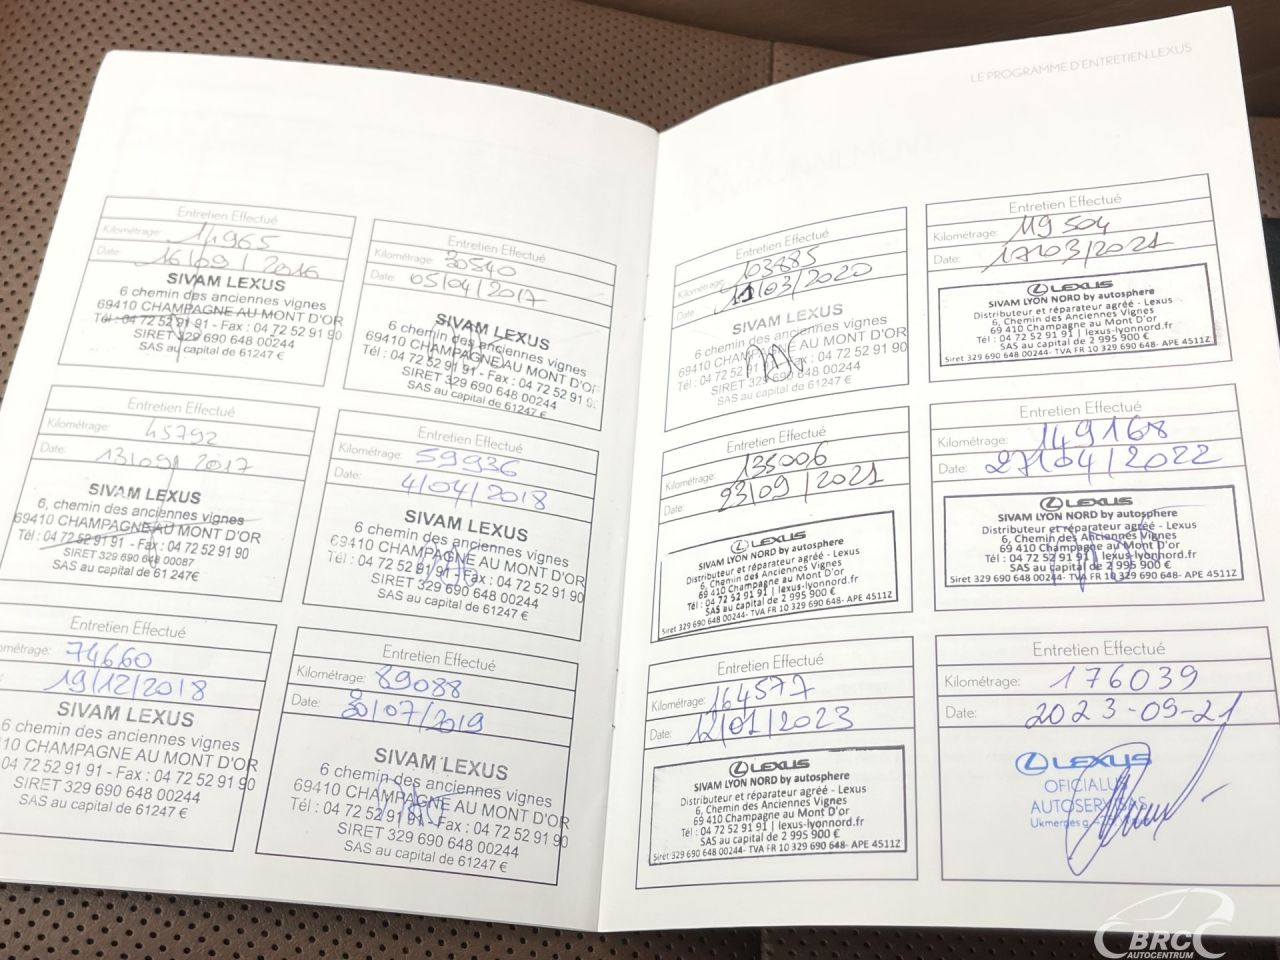 LE PROGRAMME D'ENTRETIEN LEXUS
Entretien Effectué
Kilométrage: 14965
Date: 16/09/2016
SIVAM LEXUS
6 chemin des anciennes vignes
69410 CHAMPAGNE AU MONT D'OR
Tél : 04 72 52 91 91 - Fax : 04 72 52 91 90
SIRET 329 690 648 00244
SAS au capital de 61247 €
Entretien Effectué
Kilométrage: 30540
Date: 05/04/2017
SIVAM LEXUS
6 chemin des anciennes vignes
69410 CHAMPAGNE AU MONT D'OR
Tél : 04 72 52 91 91 - Fax : 04 72 52 91 9
SIRET 329 690 648 00244
SAS au capital de 61247 €
Entretien Effectué
Kilométrage: 45792
Date: 13/09/2017
SIVAM LEXUS
6, chemin des anciennes vignes
69410 CHAMPAGNE AU MONT D'OR
Tél : 04 72 52 91 91 - Fax : 04 72 52 91 90
SIRET 329 690 648 00087
SAS au capital de 61 247€
Entretien Effectué
Kilométrage: 59936
Date: 4/04/2018
SIVAM LEXUS
6 chemin des anciennes vignes
69410 CHAMPAGNE AU MONT D'OR
Tél : 04 72 52 91 91 - Fax : 04 72 52 91 90
SIRET 329 690 648 00244
SAS au capital de 61247 €
Entretien Effectué
ométrage: 74660
19/12/2018
SIVAM LEXUS
6 chemin des anciennes vignes
10 CHAMPAGNE AU MONT D'OR
04 72 52 91 91 - Fax : 04 72 52 91 90
SIRET 329 690 648 00244
SAS au capital de 61247 €
Entretien Effectué
Kilométrage: 89088
Date: 30/07/2019
SIVAM LEXUS
6 chemin des anciennes vignes
69410 CHAMPAGNE AU MONT D'OR
Tél : 04 72 52 91 91 - Fax : 04 72 52 91 90
SIRET 329 690 648 00244
SAS au capital de 61247 €
Entretien Effectué
Kilométrage: 103885
Date: 11/03/2020
SIVAM LEXUS
6 chemin des anciennes vignes
69410 CHAMPAGNE AU MONT D'OR
Tél : 04 72 52 91 91 - Fax : 04 72 52 91 90
SIRET 329 690 648 00244
SAS au capital de 61247 €
Entretien Effectué
Kilométrage: 119504
Date: 17/03/2021
LEXUS
SIVAM LYON NORD by autosphere
Distributeur et réparateur agréé - Lexus
6, Chemin des Anciennes Vignes
69 410 Champagne au Mont D'or
Tél : 04 72 52 91 91 | lexus-lyonnord.fr
SAS au capital de 2 995 900 €
Siret 329 690 648 00244- TVA FR 10 329 690 648- APE 4511Z
Entretien Effectué
Kilométrage: 135006
Date: 23/09/2021
LEXUS
SIVAM LYON NORD by autosphere
Distributeur et réparateur agréé - Lexus
6, Chemin des Anciennes Vignes
69 410 Champagne au Mont D'or
Tél : 04 72 52 91 91 | lexus-lyonnord.fr
SAS au capital de 2 995 900 €
Siret 329 690 648 00244- TVA FR 10 329 690 648- APE 4511Z
Entretien Effectué
Kilométrage: 149168
Date: 27/04/2022
LEXUS
SIVAM LYON NORD by autosphere
Distributeur et réparateur agréé - Lexus
6, Chemin des Anciennes Vignes
69 410 Champagne au Mont D'or
Tél : 04 72 52 91 91 | lexus-lyonnord.fr
SAS au capital de 2 995 900 €
Siret 329 690 648 00244- TVA FR 10 329 690 648- APE 4511Z
Entretien Effectué
Kilométrage: 164577
Date: 12/01/2023
LEXUS
SIVAM LYON NORD by autosphere
Distributeur et réparateur agréé - Lexus
6, Chemin des Anciennes Vignes
69 410 Champagne au Mont D'or
Tél : 04 72 52 91 91 | lexus-lyonnord.fr
SAS au capital de 2 995 900 €
Siret 329 690 648 00244- TVA FR 10 329 690 648- APE 4511Z
Entretien Effectué
Kilométrage: 176039
Date: 2023-09-21
LEXUS
OFICIALUS
AUTOSERVISAS
Ukmergės g.
BRC
AUTOCENTRUM